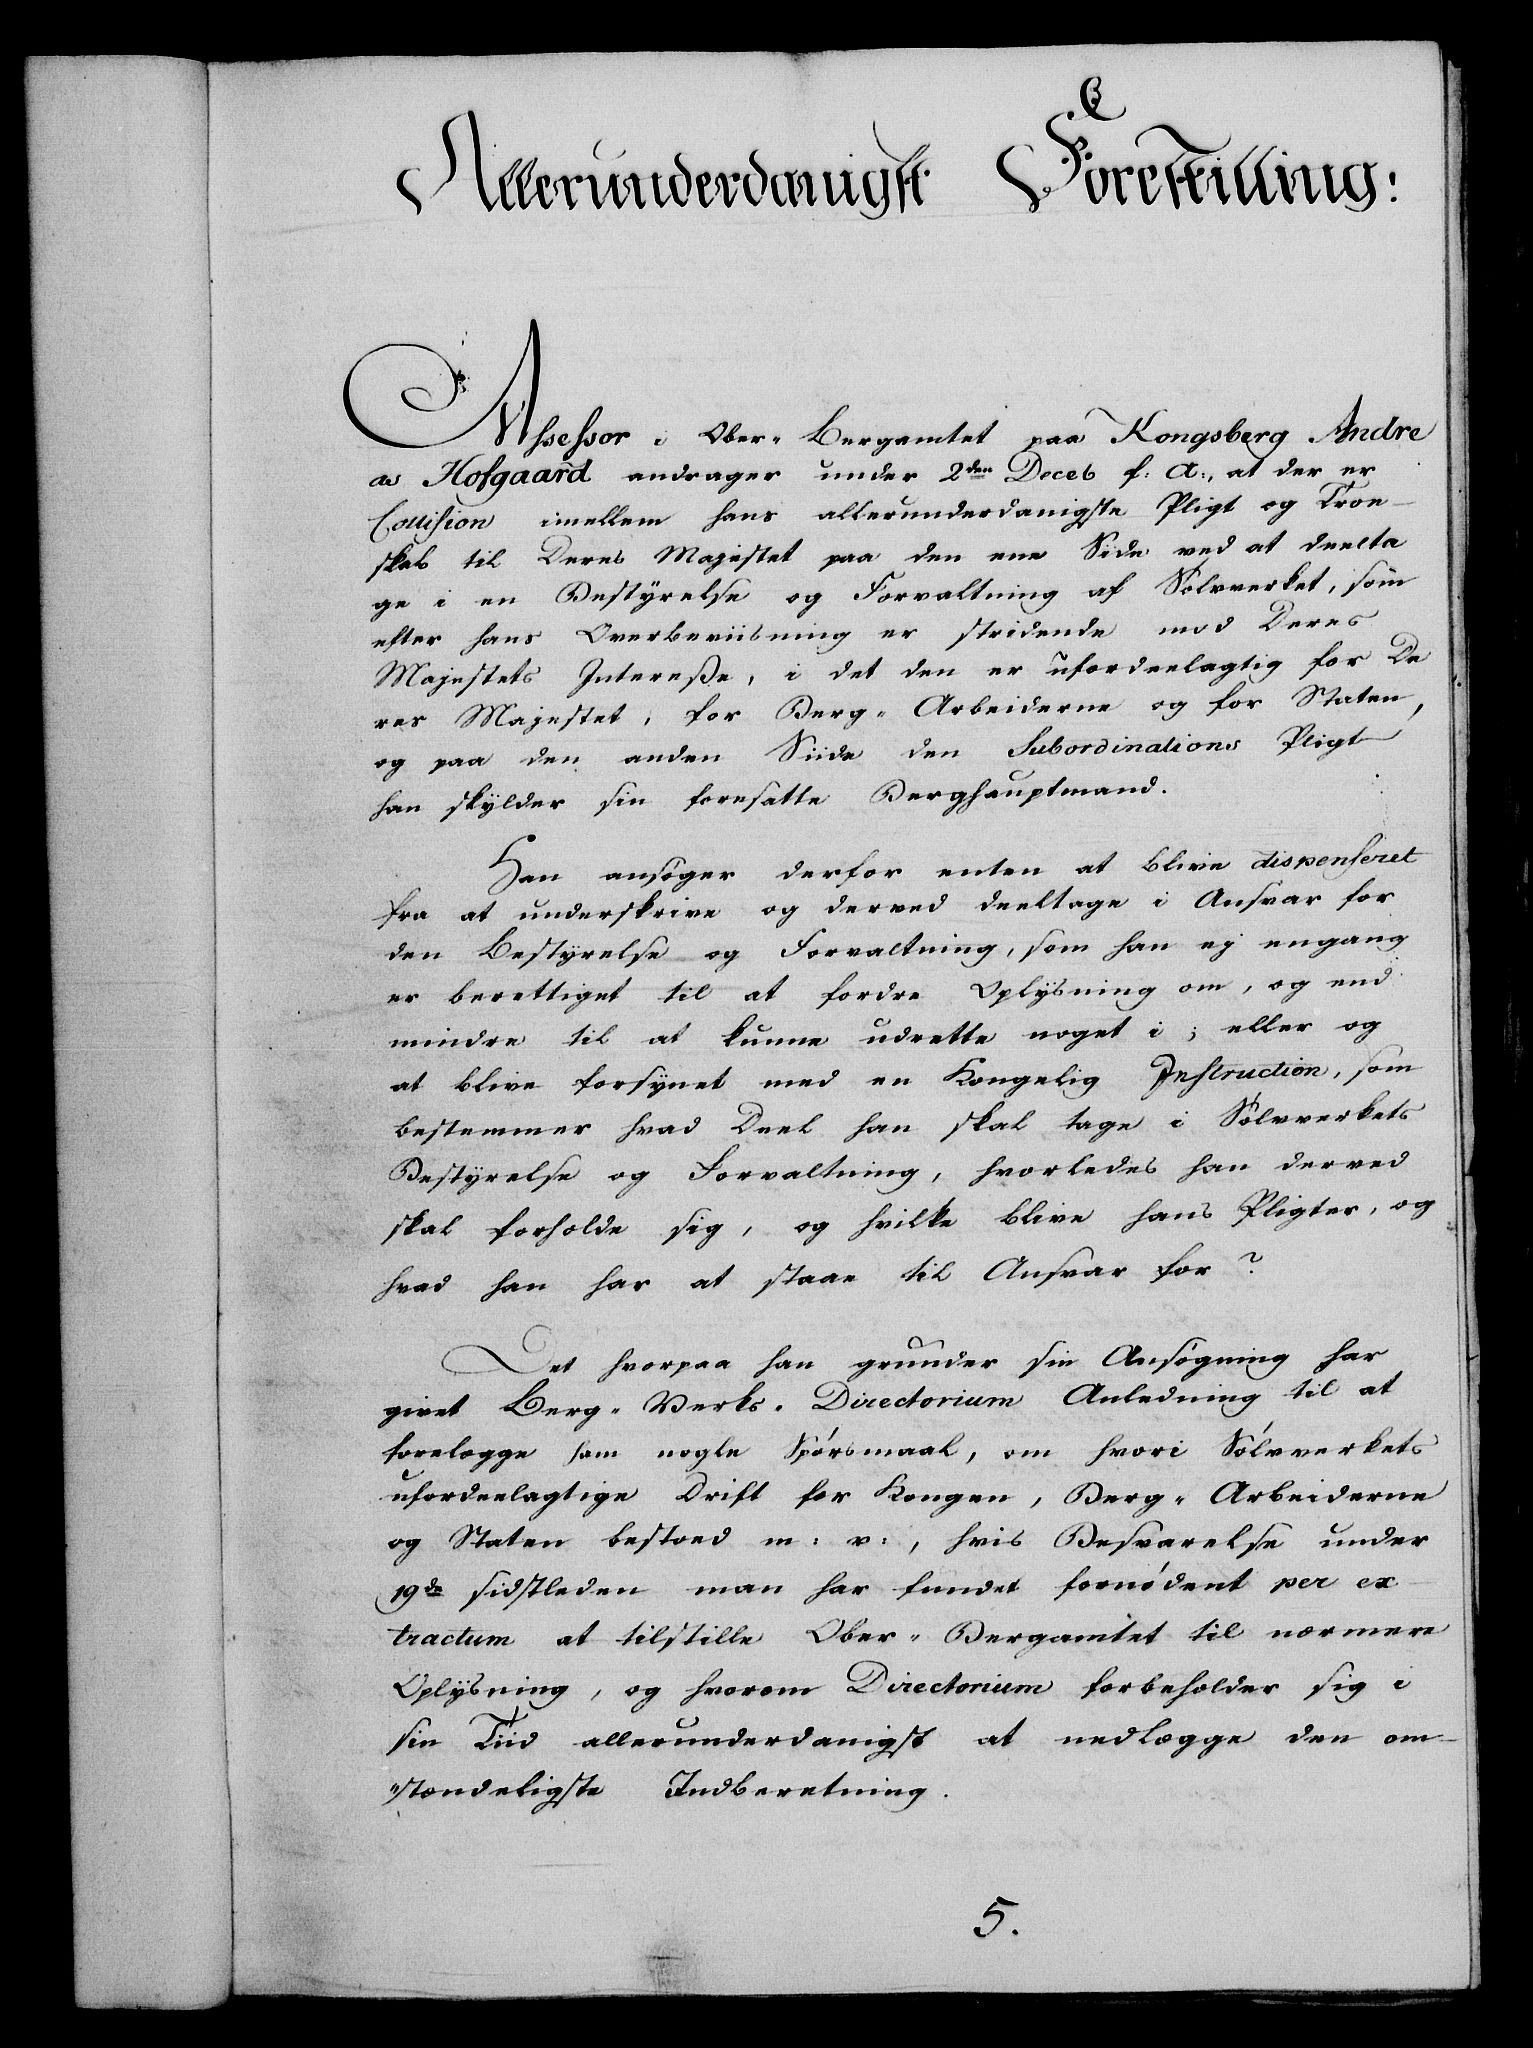 Allerunderdanigst Forestilling:
Assessor i Ober-Bergamtet paa Kongsberg Andre
as Hofgaard andrager under 2den Deceb f: A:, at der er
Collision imellem hans allerunderdanigste Pligt og Troe-
skab til Deres Majestet paa den ene Side ved at deelta
ge i en Bestyrelse og Forvaltning af Sølvverket, som
efter hans Overbeviisning er stridende mod Deres
Majestets Interesse, i det den er ufordeelagtig for De
res Majestet, for Berg-Arbeiderne og for Staten,
og paa den anden Siide den Subordinations Pligt
han skylder sin foresatte Berghauptmand.
Han ansøger derfor enten at blive dispenseret
fra at underskrive og derved deeltage i Ansvar for
den Bestyrelse og Forvaltning, som han ej engang
er berettiget til at fordre Oplysning om, og end
mindre til at kunne udrette noget i; eller og
at blive forsynet med en Kongelig Instruction, som
bestemmer hvad Deel han skal tage i Sølvverkets
Bestyrelse og Forvaltning, hvorledes han derved
skal forholde sig, og hvilke blive hans Pligter, og
hvad han har at staae til Ansvar for?
Det hvorpaa han grunder sin Ansøgning har
givet Berg-Verks-Directorium Anledning til at
forelægge ham nogle Spørsmaal, om hvori Sølvverkets
ufordeelagtige Drift for Kongen, Berg-Arbeiderne
og Staten bestoed m: v:, hvis Besvarelse under
19de sidstleden man har fundet fornødent per ex
tractum at tilstille Ober-Bergamtet til nærmere
Oplysning, og hvorom Directorium forbeholder sig i
sin Tiid allerunderdanigst at nedlægge den om-
"stændeligste Indberetning.
5.